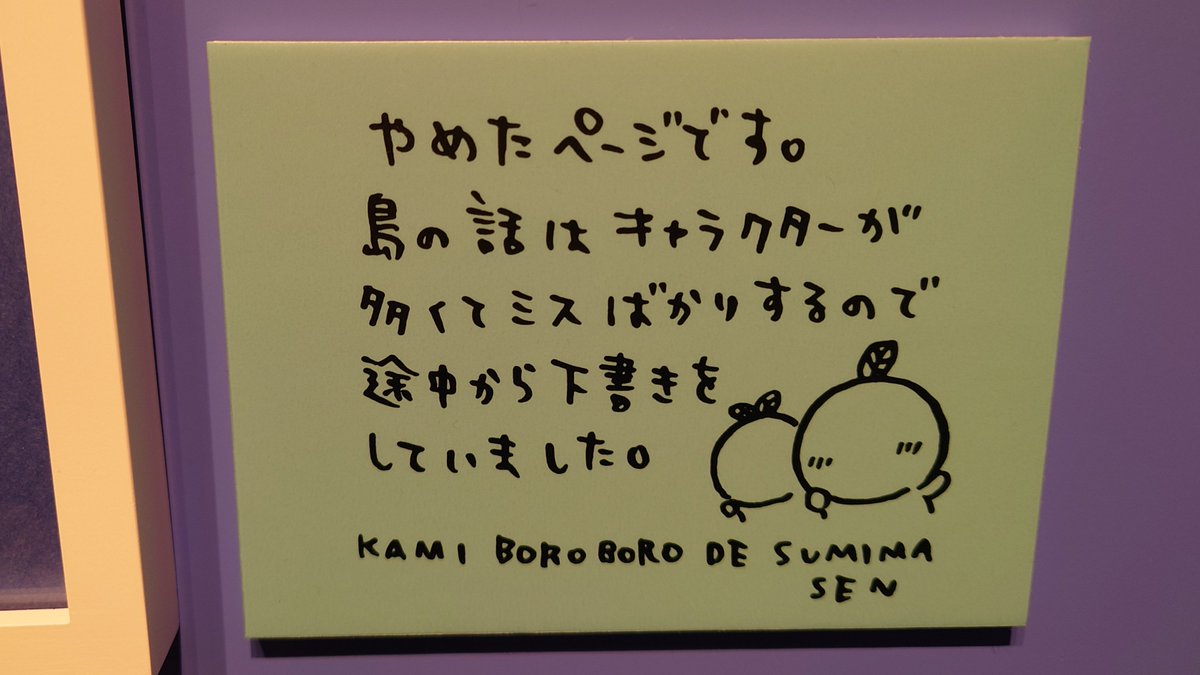 やめたページです。
島の話はキャラクターが
多くてミスばかりするので
途中から下書きを
していました。
KAMI BOROBORO DE SUMIMA
SEN